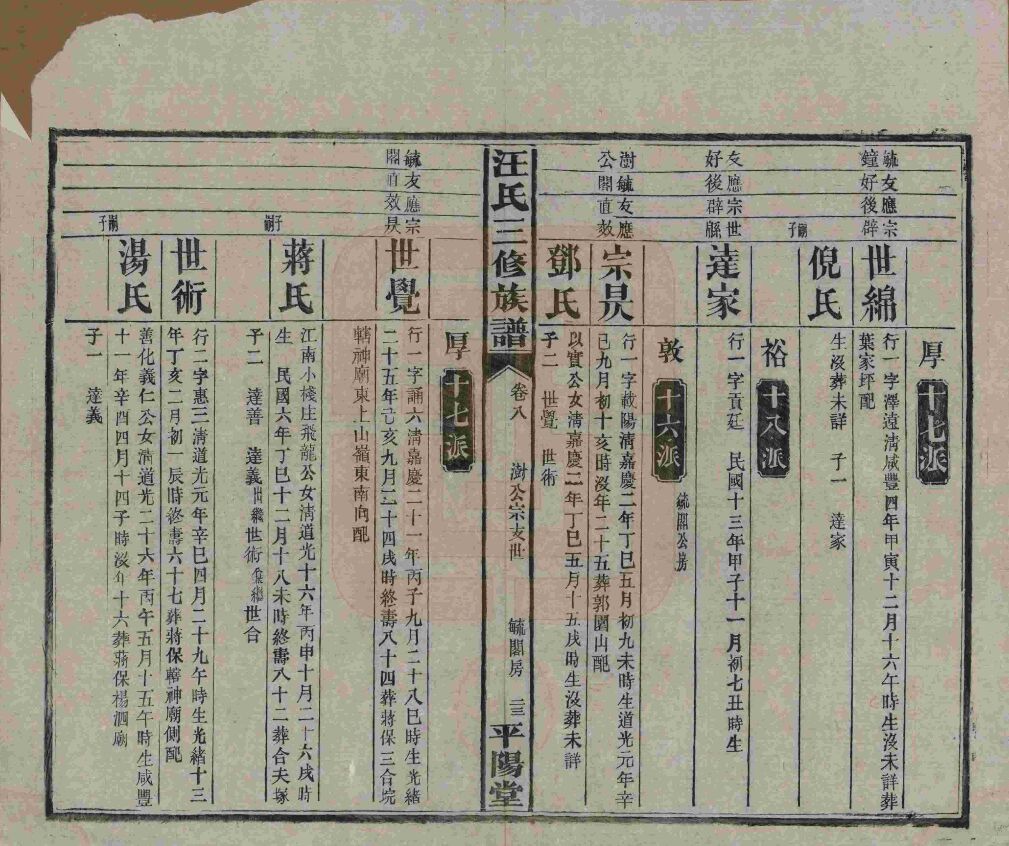 厚 十七派
毓友應宗
鐘好後辟
世綿
行一字澤遠淸咸豐四年甲寅十二月十六午時生沒未詳葬
葉家坪配
倪氏
嗣子
生沒葬未詳 子一 達家
裕 十八派
友應宗世
好後辟縣
達家
行一字貢廷 民國十三年甲子十一月初七丑時生
敦 十六派 毓閣公房
澍毓友應
公閣直效
宗昃
行一字載陽淸嘉慶二年丁巳五月初九未時生道光元年辛
巳九月初十亥時沒年二十五葬郭園山配
鄧氏
以實公女淸嘉慶二年丁巳五月十五戌時生沒葬未詳
子二 世覺 世術
汪氏三修族譜 卷八 澍公宗支世 毓閣房 二三 平陽堂
厚 十七派
毓友應宗
閣直效昃
世覺
行一字誦六淸嘉慶二十一年丙子九月二十八巳時生光緒
二十五年己亥九月二十四戌時終壽八十四葬蔣保三合垸
轄神廟東上山嶺東南向配
蔣氏
嗣子
江南小棧庄飛龍公女淸道光十六年丙申十月二十六戌時
生 民國六年丁巳十二月十八未時終壽八十二葬合夫塚
子二 達善 達義出繼世術兼繼世合
世術
行二字惠三淸道光元年辛巳四月二十九午時生光緒十三
年丁亥二月初一辰時終壽六十七葬蔣保轄神廟側配
湯氏
嗣子
善化義仁公女淸道光二十六年丙午五月十五午時生咸豐
十一年辛酉四月十四子時沒年十六葬蔣保楊泗廟
子一 達義